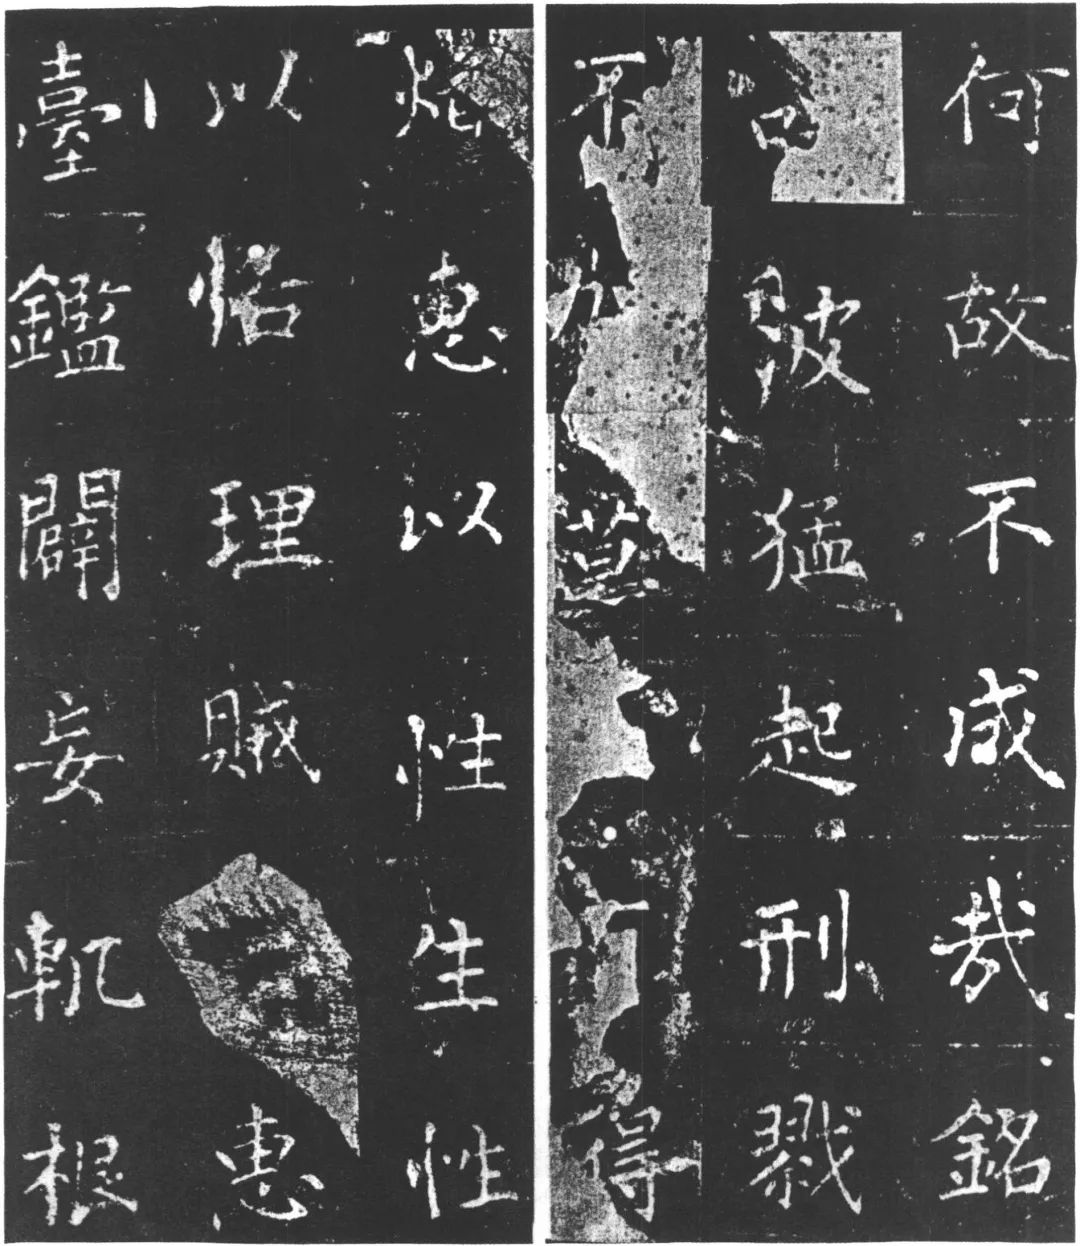 何故不成哉銘
曰猛起刑戮
不得
惠以性生性
以恬理賊惠
臺鑑闢妄軏根